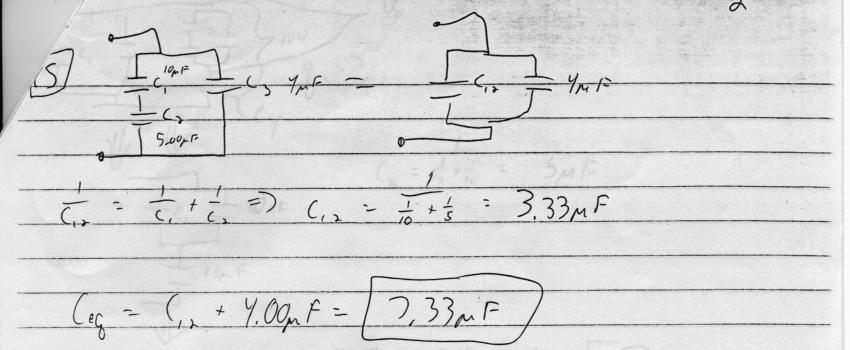 2
5
10μF
C₁
C₂
5.00μF
C₃ 4μF =
C₁,₂ 4μF
1/C₁,₂ = 1/C₁ + 1/C₂ => C₁,₂ = 1/(1/10 + 1/5) = 3.33μF
Ceq = C₁,₂ + 4.00μF = 7.33μF